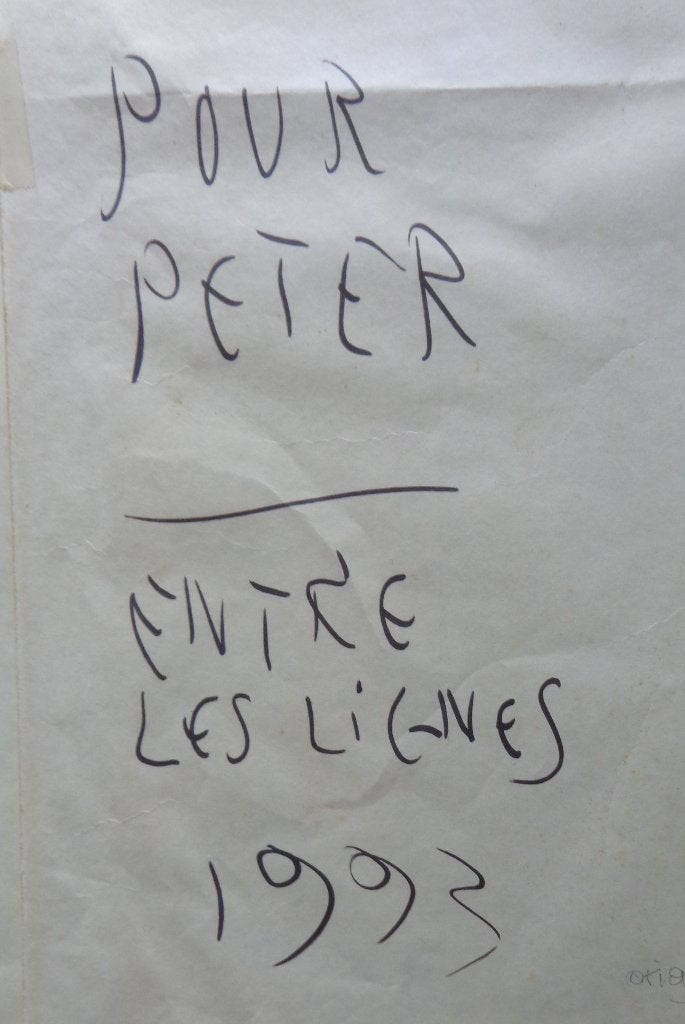 POUR
PETER
ENTRE
LES LIGNES
1993